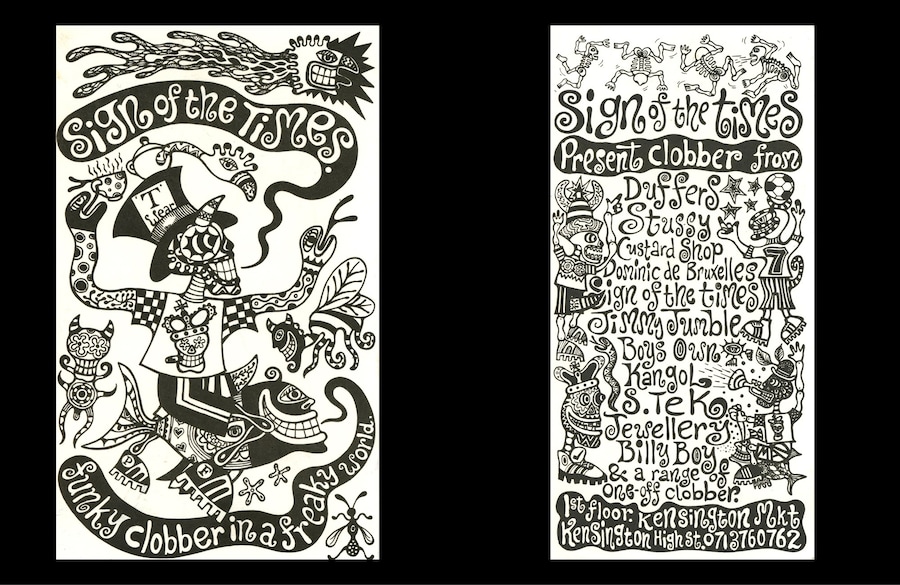 Sign of the Times
T Wear
funky clobber in a freaky world.
Sign of the times
Present clobber from
Duffers
Stussy
Custard Shop
Dominic de Bruxelles
Sign of the times
Jimmy Jumble
Boys Own
Kangol
S.Tek
Jewellery
Billy Boy
& a range of
one-off clobber.
1st floor. Kensington Mkt
Kensington High St. 071 3760762
7